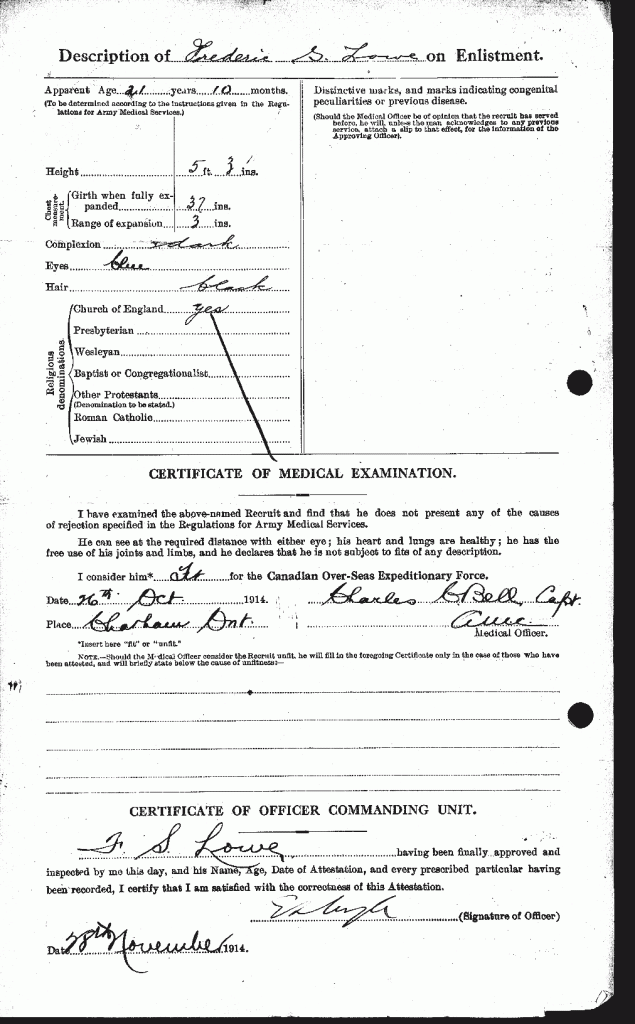 Description of Frederic S. Lowe on Enlistment.
Apparent Age 21 years 10 months.
(To be determined according to the instructions given in the Regu-
lations for Army Medical Services.)
Height 5 ft. 3 ins.
Chest measurement.
Girth when fully ex-
panded 37 ins.
Range of expansion 3 ins.
Complexion dark
Eyes blue
Hair black
Religious denominations.
Church of England yes
Presbyterian
Wesleyan
Baptist or Congregationalist
Other Protestants
(Denomination to be stated.)
Roman Catholic
Jewish
Distinctive marks, and marks indicating congenital
peculiarities or previous disease.
(Should the Medical Officer be of opinion that the recruit has served
before, he will, unless the man acknowledges to any previous
service, attach a slip to that effect, for the information of the
Approving Officer).
CERTIFICATE OF MEDICAL EXAMINATION.
I have examined the above-named Recruit and find that he does not present any of the causes
of rejection specified in the Regulations for Army Medical Services.
He can see at the required distance with either eye; his heart and lungs are healthy; he has the
free use of his joints and limbs, and he declares that he is not subject to fits of any description.
I consider him* Fit for the Canadian Over-Seas Expeditionary Force.
Date 26th Oct 1914. Charles C Bell, Capt.
Place Chatham Ont. AMC
Medical Officer.
*Insert here "fit" or "unfit."
NOTE.—Should the Medical Officer consider the Recruit unfit, he will fill in the foregoing Certificate only in the case of those who have
been attested, and will briefly state below the cause of unfitness:—
CERTIFICATE OF OFFICER COMMANDING UNIT.
F S Lowe having been finally approved and
inspected by me this day, and his Name, Age, Date of Attestation, and every prescribed particular having
been recorded, I certify that I am satisfied with the correctness of this Attestation.
(Signature of Officer)
Date 28th November 1914.